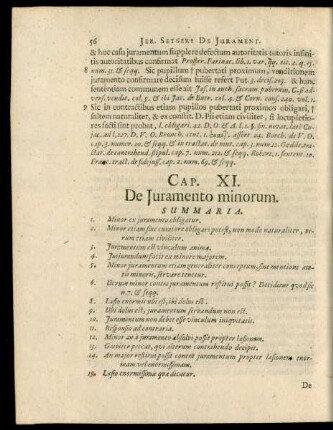 56 JER. SETSERS DE JURAMENT.
& hoc casu juramentum supplere defectum autoritatis tutoris infini-
tis autoritatibus confirmat Prosper. Farinac. lib. 1. var. qq. tit. 2. q. 15.
8 num. 31. & seqq. Sic pupillum pubertati proximum, venditionem
juramento confirmare decisum fuisse refert Put. 3. decis. 205. & hanc
sententiam communem esse ait Jas. in auth. sacram. puberum. C. si ad-
vers. vendit. col. 5. & ibi Jac. de Butr. col. 4. & Corn. cons. 240. vol. 1.
9 Sic in contractibus etiam pupillos pubertati proximos obligari,
saltem naturaliter, & ex constit. D. Pii etiam civiliter, si incapletio-
res facti sint probat,
cap. 3. numer. 10. & seqq. & in tractat. de mut. cap. 3. num. 12.
tractat. de contrahend. stipul. cap. 7. num. 212. & seqq.
Franc. tract. de fidejuss. cap. 2. num. 69. & seqq.
CAP. XI.
De Juramento minorum.
SUMMARIA.
1. Minor ex juramento obligatur.
2. Minor etiam sine curatore obligari potest, non modo naturaliter, ve-
rum etiam civiliter.
3. Juramentum est vinculum animæ.
4. Jusjurandum facit ex minore majorem.
5. Minor juramentum etiam generaliter conceptum, sine mentione æta-
tis minoris, servare tenetur.
6. Utrum minor contra juramentum restitui possit? Deciditur quod sic
n. 7. & seqq.
8. Læsio enormis ubi est, ibi dolus est.
9. Ubi dolus est, juramentum servandum non est.
10. Juramentum non debet esse vinculum iniquitatis.
11. Responsio ad contraria.
12. Minor an à juramento absolvi possit propter læsionem.
13. Graviter peccat, qui alterum contrahendo decipit.
14. An major restitui possit contra juramentum propter læsionem enor-
mem vel enormissimam.
15. Læsio enormissima quæ dicatur.
De